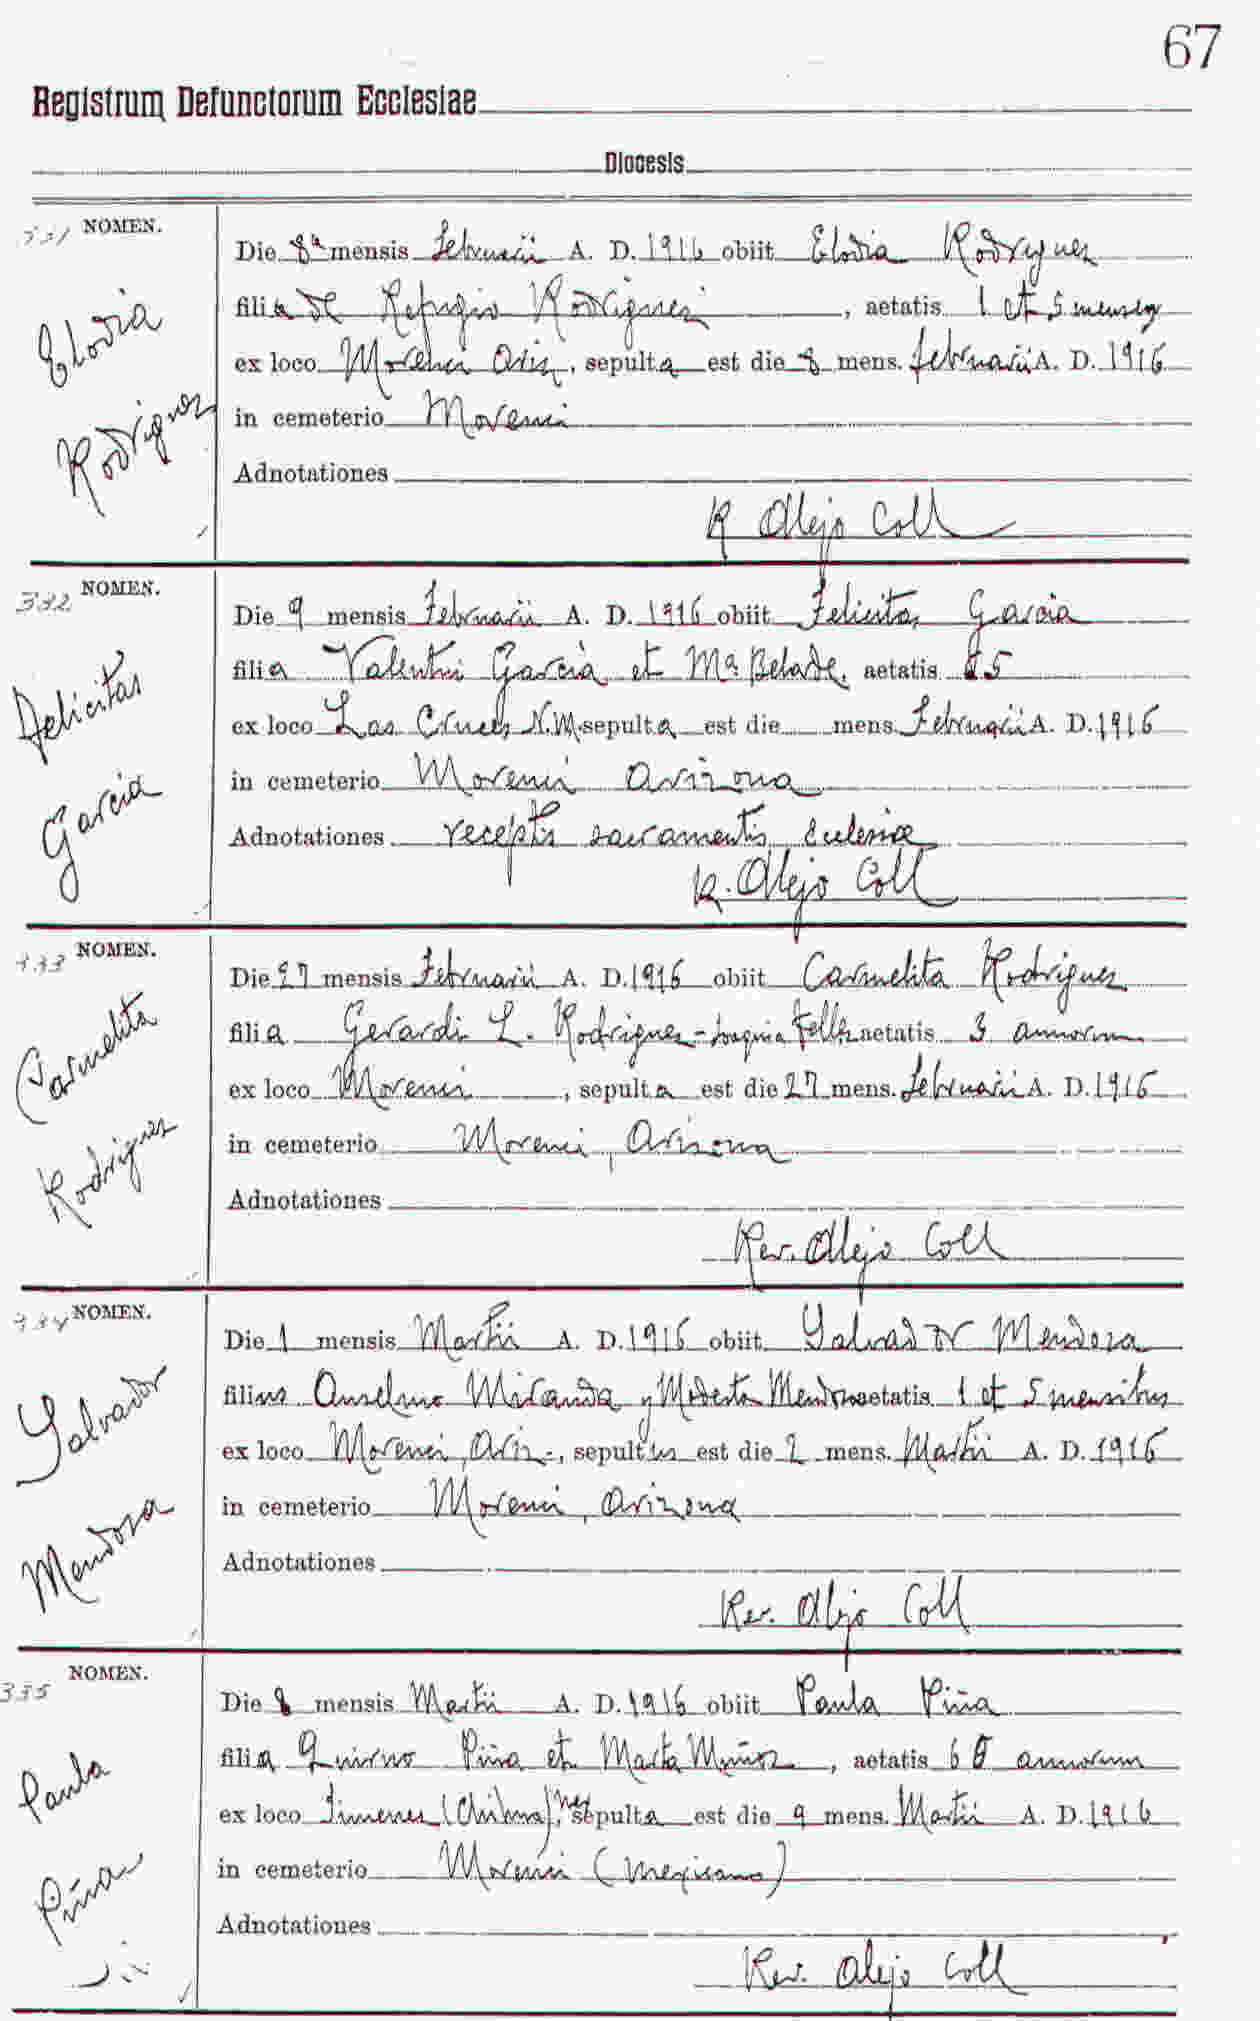 67
Registrum Defunctorum Ecclesiae
Diocesis
331 NOMEN.
Elodia
Rodriguez
Die 8ª mensis Februarii A. D. 1916 obiit Elodia Rodryguez
filia de Refugio Rodriguez, aetatis 1 et 5 menses
ex loco Morenci Ariz, sepulta est die 8 mens. februarii A. D. 1916
in cemeterio Morenci
Adnotationes
R Alejo Coll
332 NOMEN.
Felicitas
Garcia
Die 9 mensis Februarii A. D. 1916 obiit Felicitas Garcia
filia Valentin Garcia et Mª aetatis 5
ex loco Las Cruces N.M. sepulta est die mens. Februarii A. D. 1916
in cemeterio Morenci Arizona
Adnotationes receptis sacramentis Ecclesiæ
R. Alejo Coll
333 NOMEN.
Carmelita
Rodriguez
Die 27 mensis Februarii A. D. 1916 obiit Carmelita Rodriguez
filia Gerardi L. Rodriguez - Joaquina aetatis 3 annorum
ex loco Morenci, sepulta est die 27 mens. februarii A. D. 1916
in cemeterio Morenci, Arizona
Adnotationes
Rev. Alejo Coll
334 NOMEN.
Salvador
Mendoza
Die 1 mensis Martii A. D. 1916 obiit Salvador Mendoza
filius Anselmo Miranda y Modesta Mendoza aetatis 1 et 5 mensibus
ex loco Morenci, Ariz-, sepultus est die 2 mens. Martii A. D. 1916
in cemeterio Morenci, Arizona
Adnotationes
Rev. Alejo Coll
335 NOMEN.
Paula
Piña
Die 8 mensis Martii A. D. 1916 obiit Paula Piña
filia Quirino Piña et Marta Muñoz, aetatis 6 annorum
ex loco Jimenes (Chihua) Mex, sepulta est die 9 mens. Martii A. D. 1916
in cemeterio Morenci (mexicano)
Adnotationes
Rev. Alejo Coll